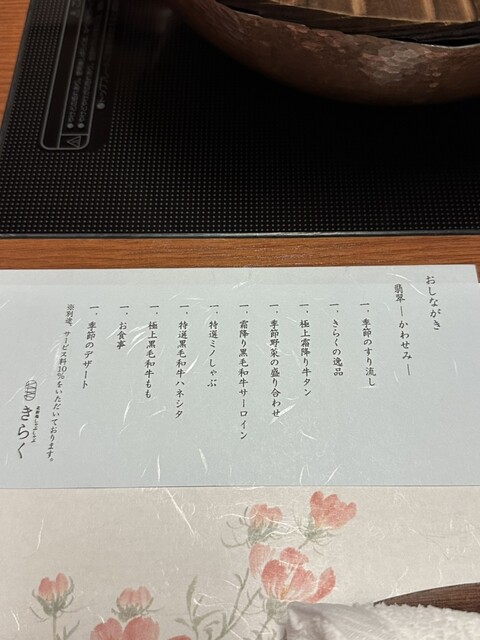 おしながき
翡翠 ―かわせみ―
一、季節のすり流し
一、きらくの逸品
一、極上霜降り牛タン
一、季節野菜の盛り合わせ
一、霜降り黒毛和牛サーロイン
一、特選ミノしゃぶ
一、特選黒毛和牛ハネシタ
一、極上黒毛和牛もも
一、お食事
一、季節のデザート
※別途、サービス料10%をいただいております。
きらく